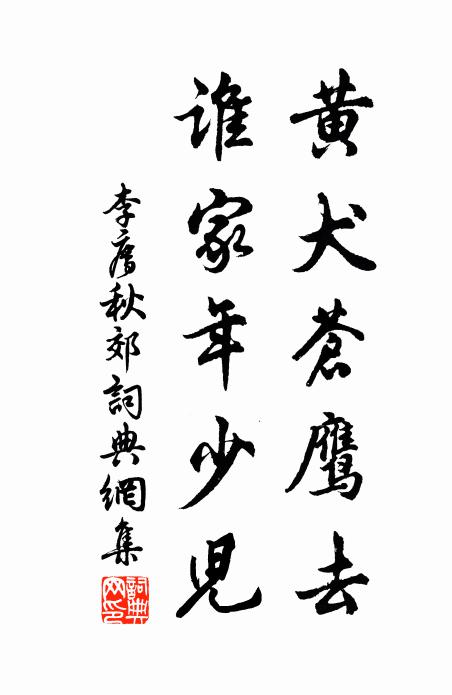 黄犬蒼鷹去
誰家年少兒
李秋郊詞典網集
詞典网印